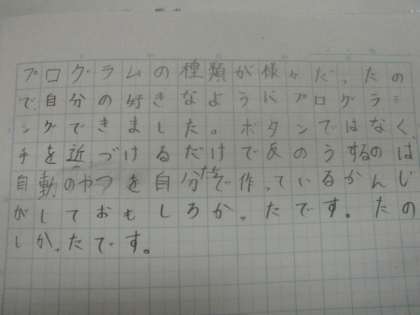 プログラムの種類が様々だったの
で、自分の好きなようにプログラミ
ングできました。ボタンではなく
手を近づけるだけで反のうするのは
自動のやつを自分たちで作っているかんじ
がしておもしろかったです。たの
しかったです。